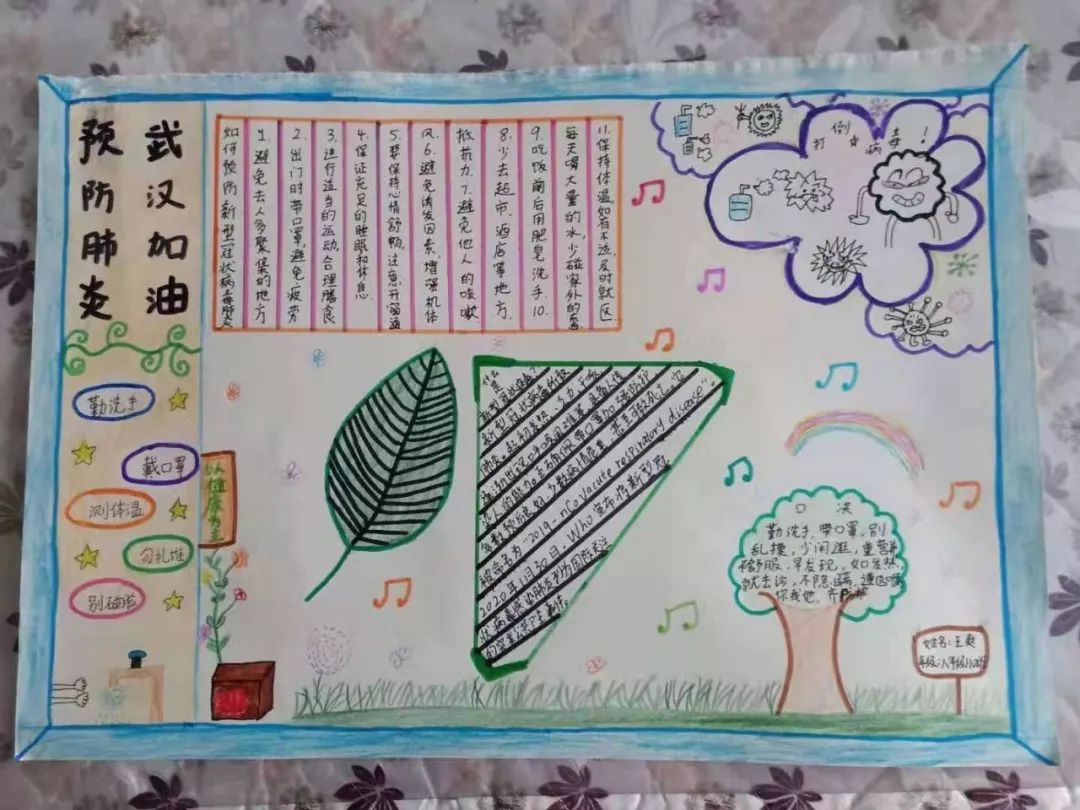 武汉加油
预防肺炎
勤洗手
戴口罩
测体温
勿扎堆
别碰脸
以健康为主
如何预防新型冠状病毒肺炎
1.避免去人多聚集的地方
2.出门时带口罩,避免疲劳
3.进行适当的运动,合理膳食
4.保证充足的睡眠和休息.
5.要保持心情舒畅,注意开窗通
风.6.避免诱发因素,增强机体
抵抗力.7.避免他人的咳嗽
8.少去超市、酒店等地方.
9.吃饭前后用肥皂洗手.10.
每天喝大量的水,少碰家外的
11.保持体温,如有不适,及时就医
打倒病毒!
什么是
被命名为"2019-nCoV acute respiratory disease".
2020年1月30日,WHO宣布将新型冠
状病毒感染肺炎列为国际关注
的突发公共卫生事件.
口决
勤洗手,带口罩,别
乱撞,少闲逛,重营养
早发现,如发热
就去治,不隐瞒,遵医嘱
你我他,齐
姓名:王爽
年级:八年级